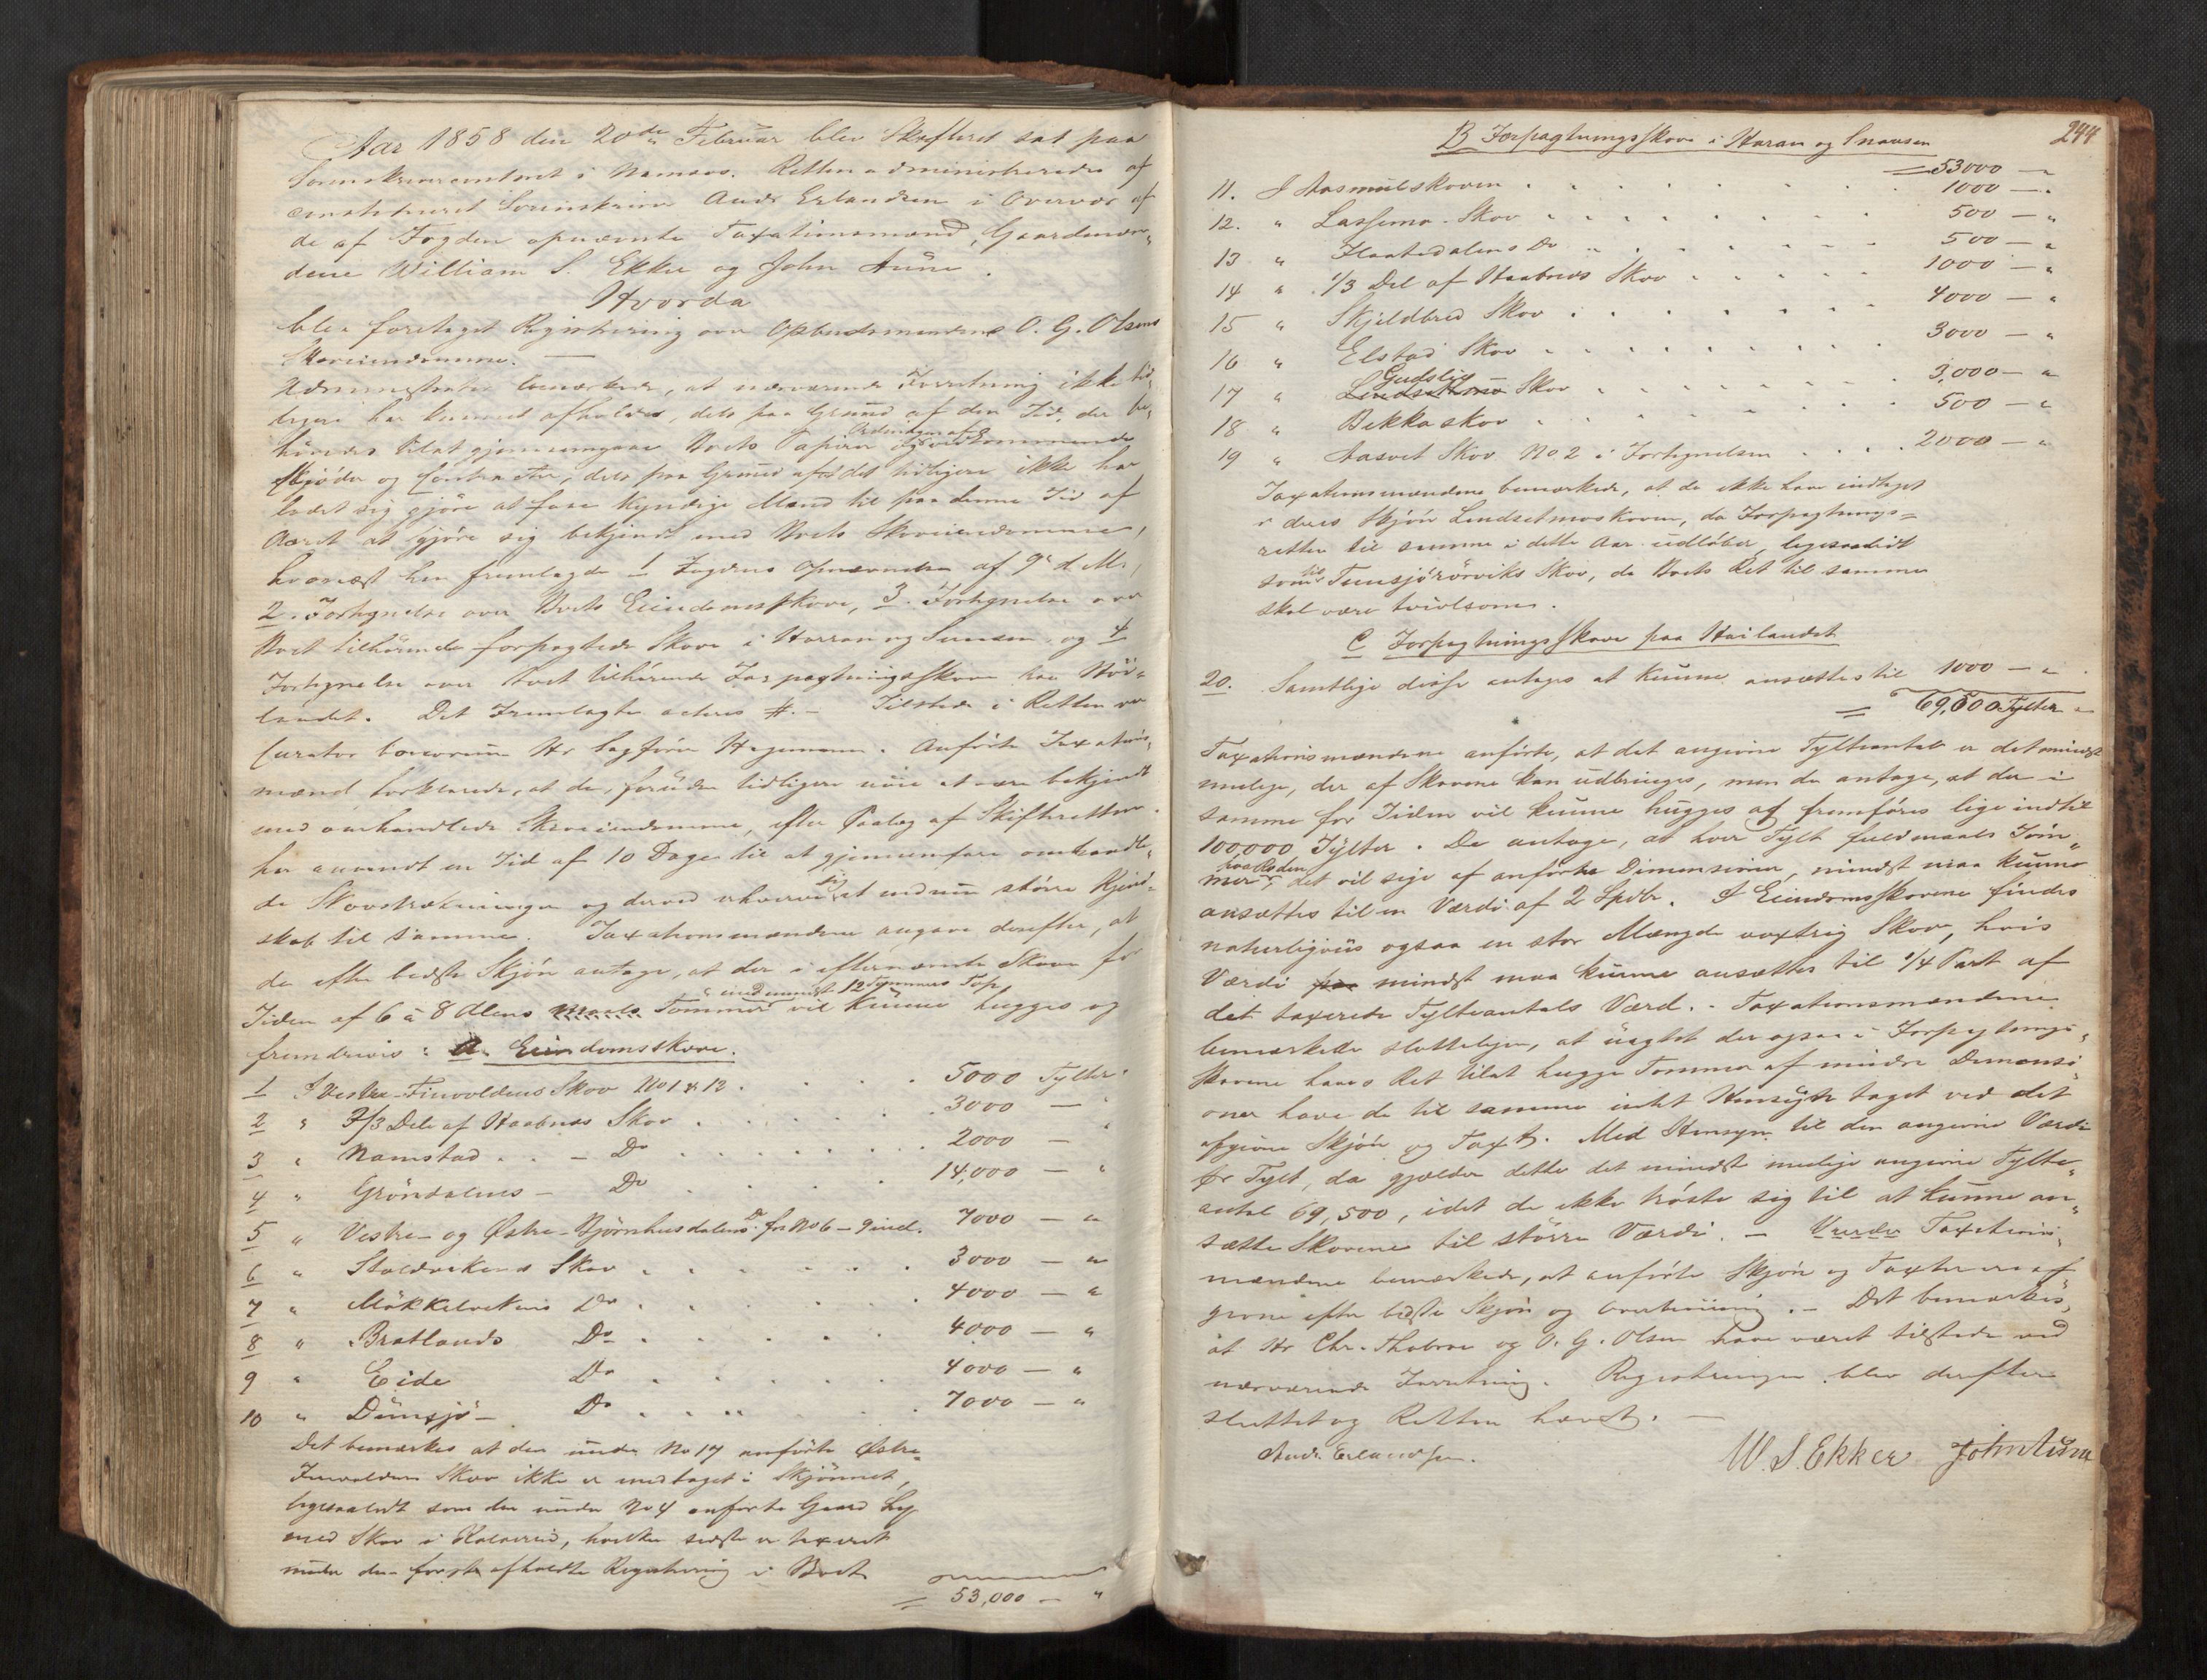 Aar 1858 den 20de Februar blev Skifteret sat paa
Sorenskrivercontoret i Namsos. Retten administreredes af
constitueret Sorenskriver Andr Erlandsen i Overvær af
de af Fogden opnævnte Taxationsmænd, Gaardmæn„
dene William S. Ekker og John Aune.
Hvorda
blev foretaget Registrering over Opbudsmanden O. G. Olsens
Skoveiendomme. —
Administrator bemærkede, at nærværende Forretning ikke tid„
ligere har kunnet afholdes, dels paa Grund af den Tid, der be„
hövedes til at gjennemgaae Boets Papirer Ordningen af og vedkommende
Skjöder og Contracter, dels paa Grund af at det tidligere ikke har
ladet sig gjöre at faae kyndige Mænd til paa denne Tid af
Aaret at gjöre sig bekjendt med Boets Skoveiendomme,
hvornæst han fremlagde 1 Fogdens Opnævnelse af 9de d. M.,
2. Fortegnelse over Boets Eiendomsskove, 3. Fortegnelse over
Boet tilhörende forpagtede Skove i Harran og Snaasen og 4
Fortegnelse over Boet tilhörende Forpagtningsskove paa Höi„
landet. Det Fremlagte acteres #. — Tilstede i Retten var
Curator bonorum Hr Sagförer Hagemann. Anförte Taxations„
mænd forklarede, at de, foruden tidligere nöie at være bekjendt
med omhandlede Skoveiendomme, efter Paalæg af Skifteretten
har anvendt en Tid af 10 Dage til at gjennemfare omhandle„
de Skovstrækninger og derved erhvervet sig et endnu större Kjend„
skab til samme. Taxationsmændene angave derefter, at
de efter bedste Skjön antage, at der i efternævnte Skove for
Tiden af 6 à 8 Alens Tommer med mindst 12 Tommers Top vil kunne hugges og
fremdrives: A. Eiendomsskove.
1 I Vestre-Finvoldens Skov No 1 & 13 . . . . 5000 Tylter.
2 „ 2/3 Dele af Haabnæs Skov . . . . . 3000 — „
3 „ Namstad . . — Do . . . . . . 2000 — „
4 „ Gröndalens — Do . . . . 14,000 — „
5 „ Vestre- og Østre-Björnhusdalens Do fra No 6 – 9 incl. 7000 — „
6 „ Skov . . . . . . 3000 — „
7 „ Mökkelvikens Do . . . . . 4000 — „
8 „ Bratlands Do . . . . . 4000 — „
9 „ Eide Do . . . . . 4000 — „
10 „ Dunsjö — Do . . . . . 7000 — „
Det bemærkes at den under No 17 anförte Østre
Finvoldens Skov ikke er medtaget i Skjönnet,
ligesaalidt som den under No 4 anförte Gaard
med Skov i Kolvereid, hvilken sidste er taxeret
under den förste afholdte Registrering i Boet
= 53,000 — „
244
B Forpagtningsskove i Haran og Snaasen
= 53000 — „
11. I Aasmulskoven . . . . . . 1000 — „
12. „ Lassemo-Skov . . . . . . 500 — „
13 „ Flaatedalens Do . . . . . . 500 — „
14 „ 1/3 Del af Haabnæs Skov . . . . . 1000 — „
15 „ Skjeldbred Skov . . . . . . 4000 — „
16 „ Elstad Skov . . . . . . 3000 — „
17 „ Lindsetmo Gudslis Skov . . . . . . 3,000 — „
18 „ Bekkaskov . . . . . . 500 — „
19 „ Aasvet Skov No 2 i Fortegnelsen . . . . 2000 — „
Taxationsmændene bemærkede, at de ikke have indtaget
i deres Skjön Lindsetmoskoven, da Forpagtnings=
retten til samme i dette Aar udlöber, ligesaalidt
som Tunsjörörviks Skov, da Boets Ret til samme
skal være tvivlsom.
C Forpagtningsskove paa Höilandet
20. Samtlige disse antages at kunne ansættes til 1000 — „
= 69,500 Tylter „
Taxationsmændene anförte, at det angivne Tylteantal er det mindst
mulige, der af Skovene kan udbringes, men de antage, at der i
samme for Tiden vil kunne hugges og fremföres lige indtil
100000 Tylter. De antage, at hver Tylt fuldmaals Töm„
mer paa Roden, det vil sige af anförte Dimensioner, mindst maa kunne
ansættes til en Værdi af 2 Spdlr. I Eiendomsskovene findes
naturligviis ogsaa en stor Mængde voxtrig Skov, hvis
Værdi mindst maa kunne ansættes til 1/4 Part af
det taxerede Tylteantals Værd. — Taxationsmændene
bemærkede sluttelig, at uagtet der ogsaa i Forpagtnings„
skovene haves Ret til at hugge Tømmer af mindre Dimensi„
oner have de til samme intet Hensyn taget ved det
afgivne Skjön og Taxt. Med Hensyn til den angivne Værdi
pr Tylt, da gjælder dette det mindst mulige angivne Tylte„
antal 69,500, idet de ikke tröste sig til at kunne an„
sætte Skovene til större Værdi. — Taxations„
mændene bemærkede, at anförte Skjön og Taxt er af„
givne efter bedste Skjön og Overbeviisning. — Det bemærkes,
at Hr Chr. Thobroe og O. G. Olsen have været tilstede ved
nærværende Forretning. Registreringen blev derefter
sluttet og Retten hævet. —
Andr. Erlandsen. W. S. Ekker John Aune